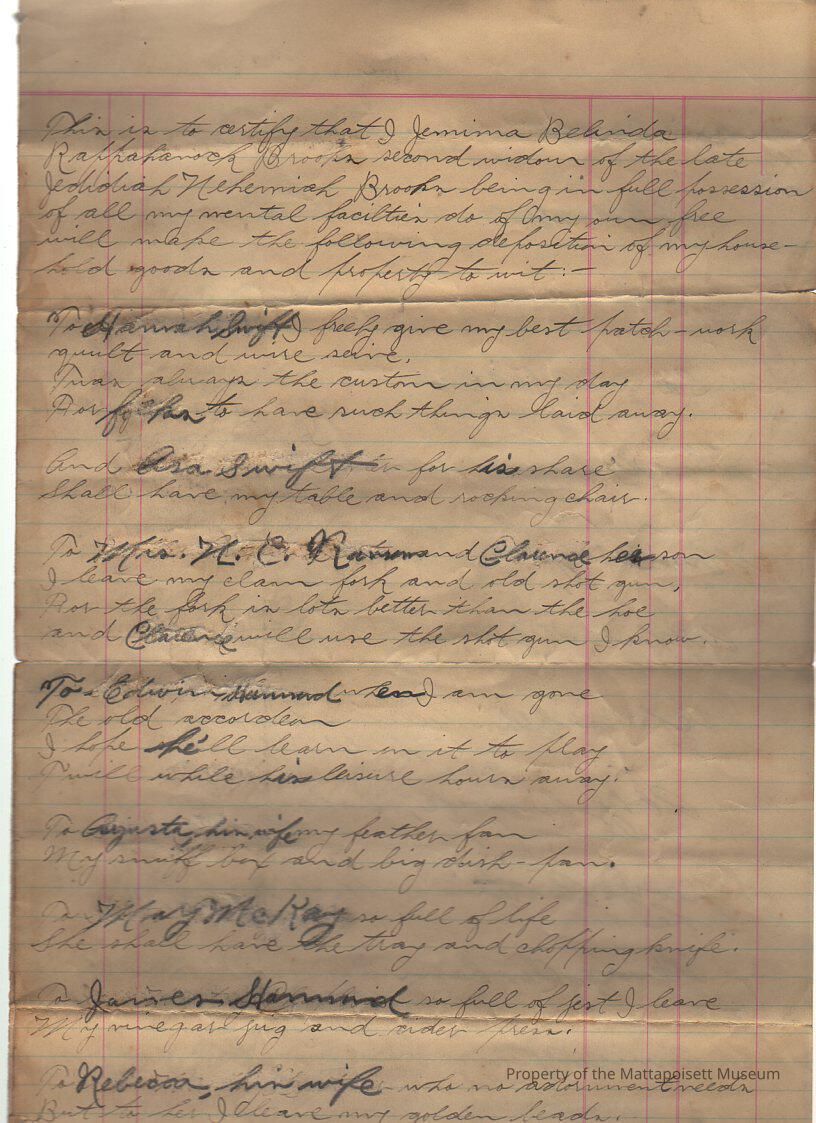 This is to certify that I Jemima Belinda
Rappahanock Brooks second widow of the late
Jedidiah Nehemiah Brooks being in full possession
of all my mental facilties do of my own free
will make the following deposition of my house-
hold goods and property to wit:-
To Hannah Swift I freely give my best patch-work
quilt and wire seive.
Twas always the custom in my day
For folks to have such things laid away.
And Asa Swift for his share
Shall have my table and rocking chair.
To Mrs. N. E. Ransom and Clarence her son
I leave my clam fork and old shot gun,
For the fork is lots better than the hoe
and Clarence will use the shot gun I know.
To Edwin Hammond when I am gone
The old accordean
I hope he'll learn on it to play
Twill while his leisure hours away.
To Augusta, his wife my feather fan
My snuff box and big dish-pan.
To May McKay so full of life
She shall have the tray and chopping knife.
To James Hammond so full of jest I leave
My vinegar jug and cider press.
To Rebecca, his wife who no adornment needs
But to her I leave my golden beads.
Property of the Mattapoisett Museum